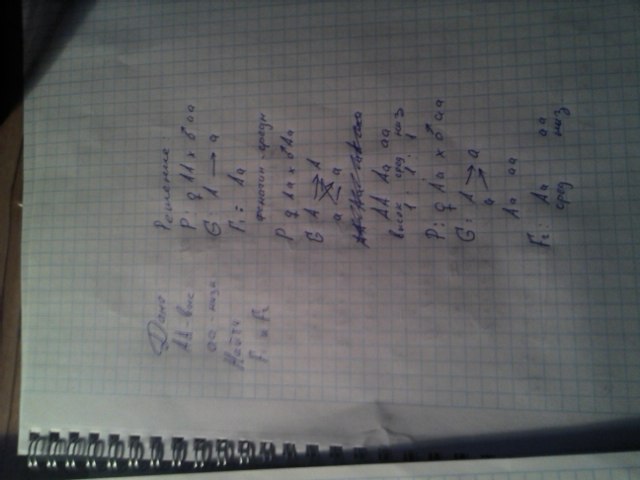 Дано
АА - выс
аа - низк
Найти
F₁ и F₂
Решение:
P: ♀ АА х ♂ аа
G: А → а
F₁: Аа
фенотип - средн
P ♀ Аа х ♂ Аа
G А А
а а
АА Аа аа
высок сред низ
1 : 1 : 1
P: ♀ Аа х ♂ аа
G: А а
а
Аа аа
F₂: Аа аа
сред низ